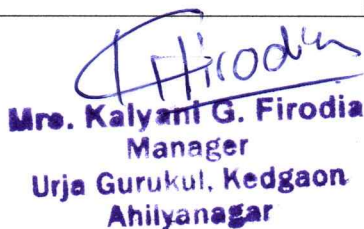 Firodia
Mrs. Kalyani G. Firodia
Manager
Urja Gurukul, Kedgaon
Ahilyanagar